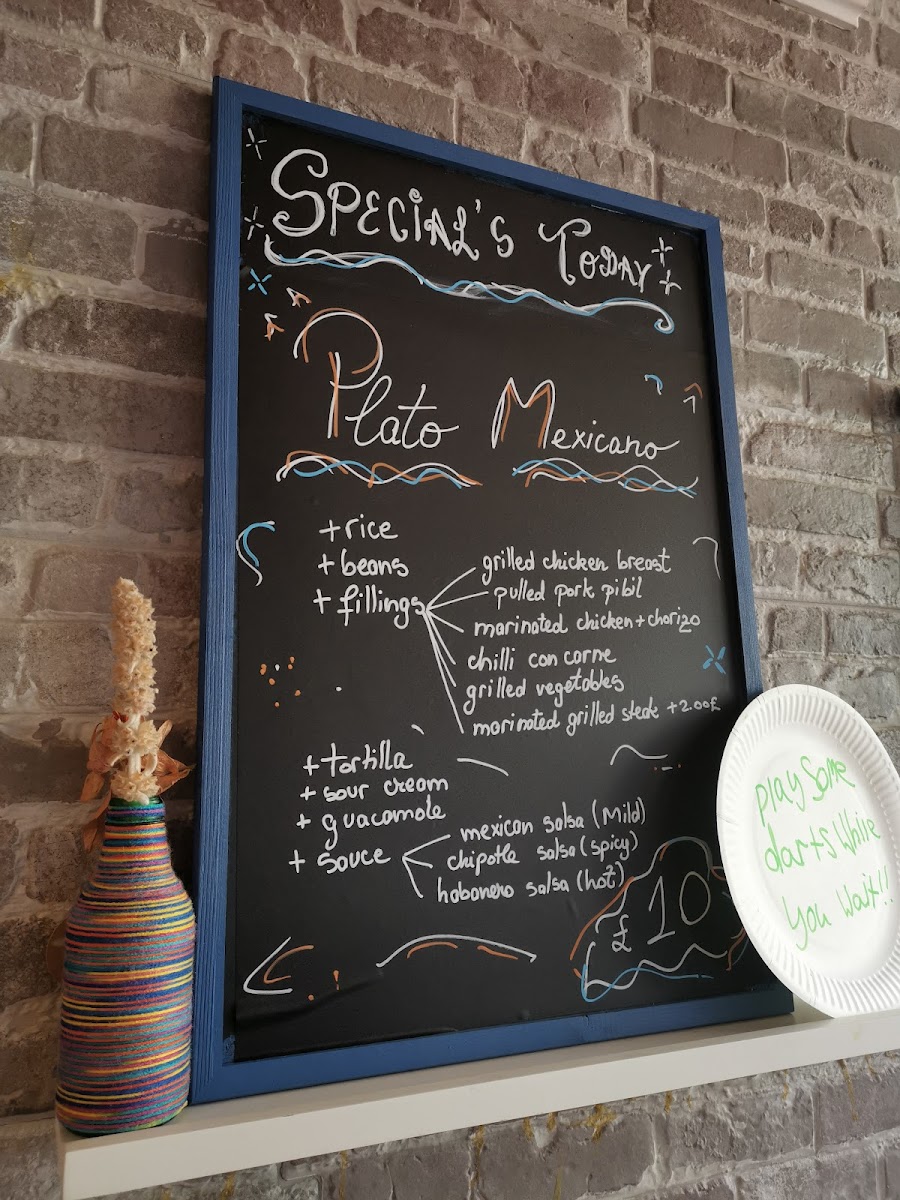 SPECIAL'S TODAY
Plato Mexicano
+rice
+beans
+fillings
grilled chicken breast
pulled pork pibil
marinated chicken+chorizo
chilli con carne
grilled vegetables
marinated grilled steak +2.00£
+tortilla
+sour cream
+guacamole
+sauce
mexican salsa (Mild)
chipotle salsa (spicy)
habanero salsa (hot)
£10
play Some
darts While
you Wait!!